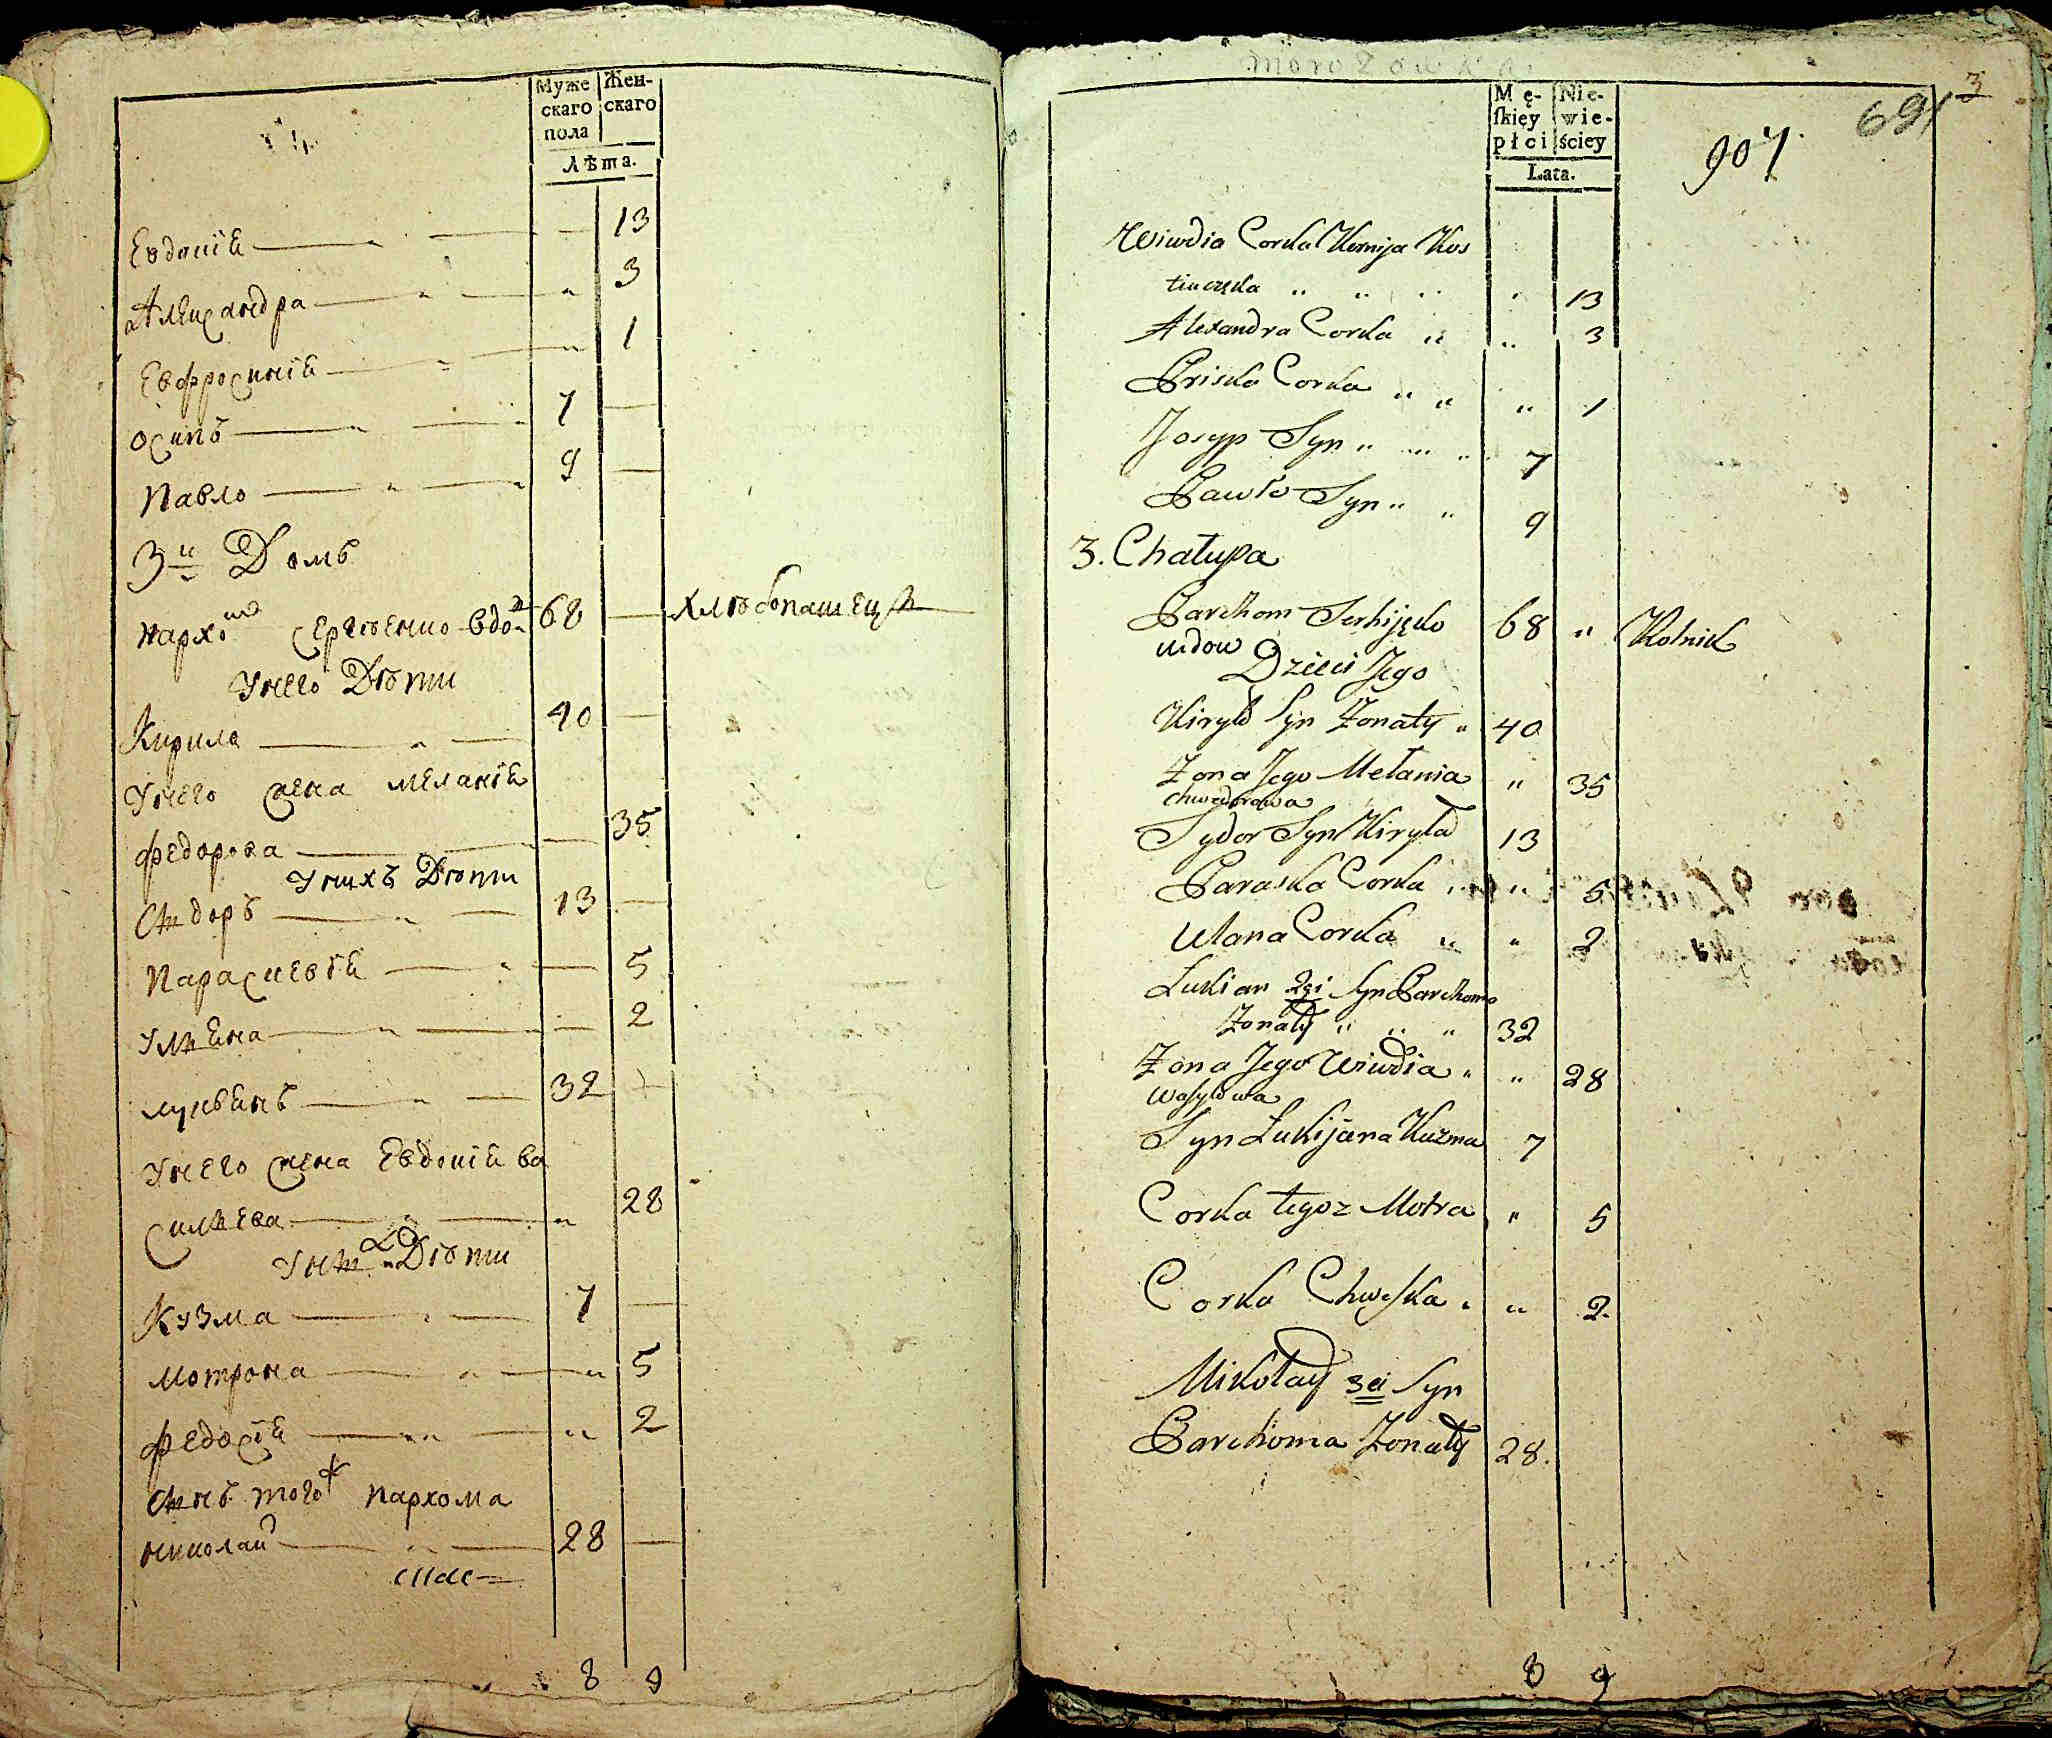 Муже
скаго
пола
Жен-
скаго
Лѣта.
Евдокія 13
Александра 3
Евфросинія 1
Осипъ 7
Павло 9
3й Домъ
Пархомъ Сергѣенко вдо 68 хлѣбопашецъ
У него Дѣти
Кирило 40
У него жена Меланія
Федорова 35
У нихъ Дѣти
Сыдоръ 13
Параскевія 5
Ульяна 2
Лукьянъ 32
У него жена Евдокія Ва
сильева 28
У ных Дѣти
Кузма 7
Мотрона 5
Федосія 2
Сынъ того ж Пархома
Николай 28
8 9
Morozówka
Mę-
skiey
płci
Nie-
wie-
ściey
Lata.
907
691
3
Wiwdia Corka Kornija Kos
tiuczska " " " " 13
Alexandra Corka " " 3
Priska Corka " " " 1
Josyp Syn " " " 7
Pawło Syn " " 9
3. Chałupa
Parchom Serhijęko 68 " Rolnik
wdow
Dzieci Jego
Kiryło Syn Żonaty " 40
Żona Jego Mełania " 35
Chwedorowa
Sydor Syn Kiryła 13
Paraska Corka " " 5
Ulana Corka " " 2
Łukian 2gi Syn Parchoma
Żonaty " " " 32
Żona Jego Wiwdia " " 28
Wasylowa
Syn Łukijana Kuzma 7
Corka tegoz Motra " 5
Corka Chweska " " 2.
Mikołay 3ci Syn
Parchoma Żonaty 28.
8 9